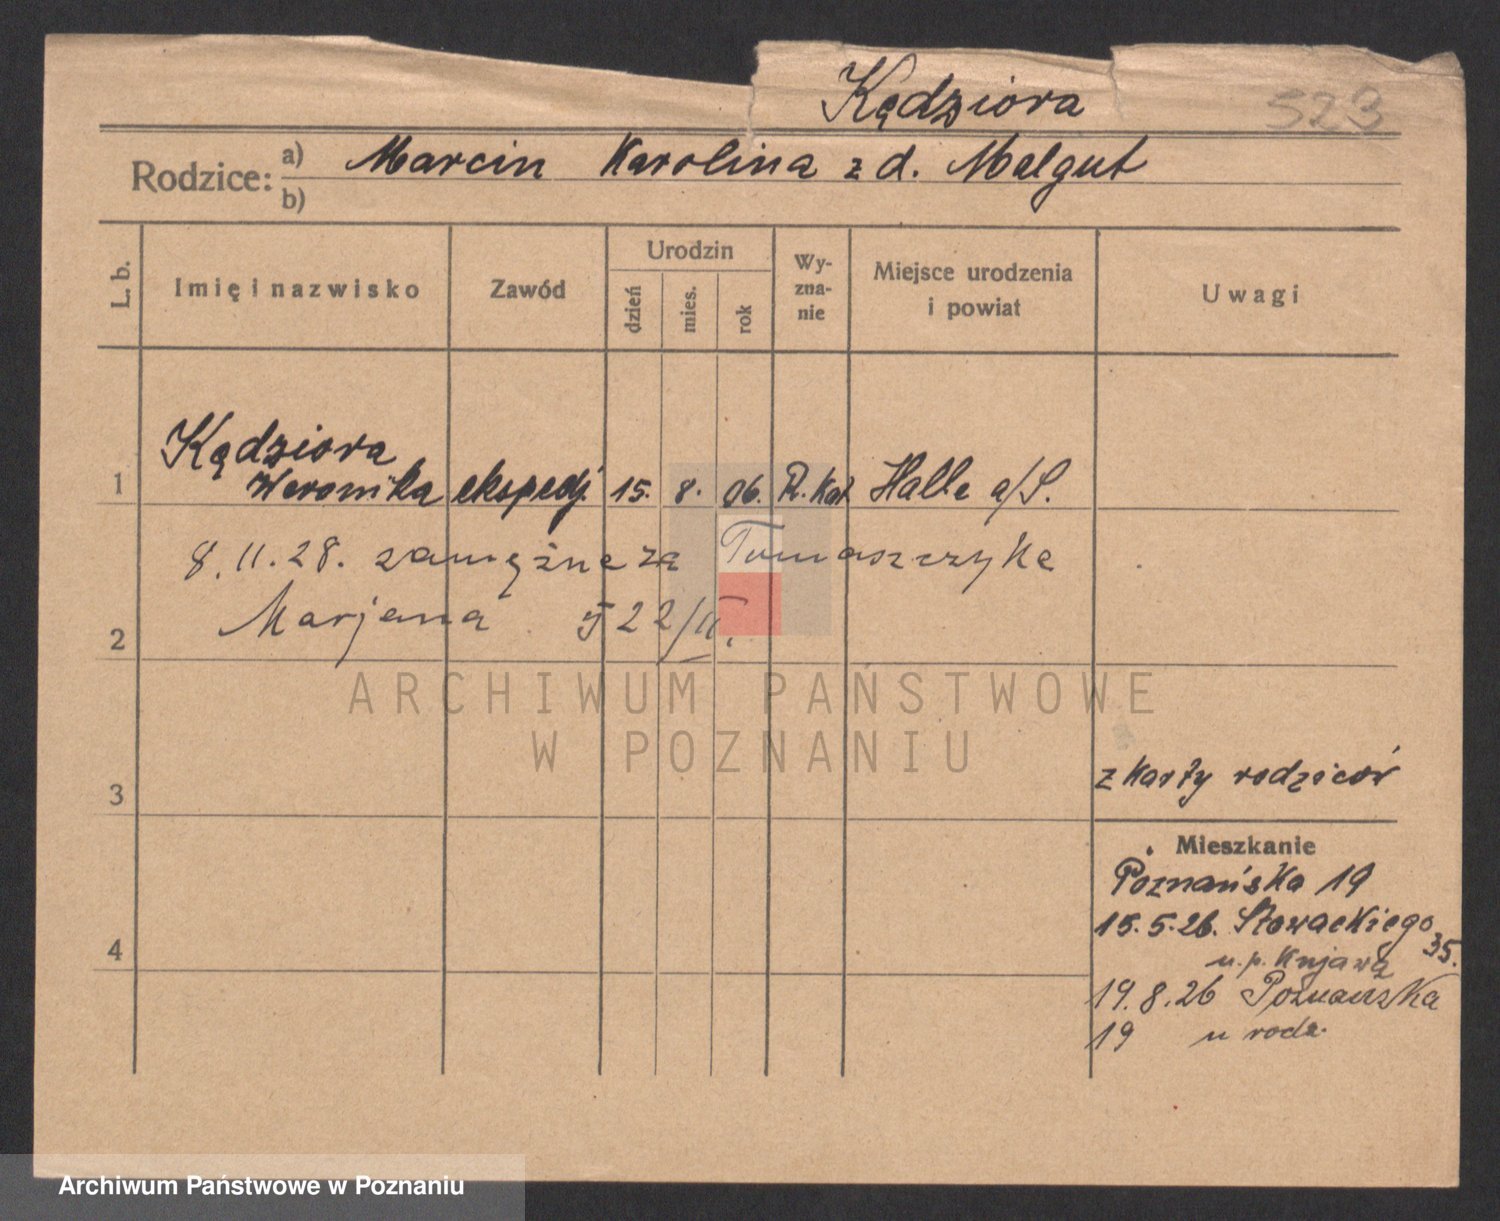 Kędziora 523
Rodzice: a) Marcin Karolina z d. Malgut
b)
L. b. Imię i nazwisko Zawód Urodzin dzień mies. rok Wy-zna-nie Miejsce urodzenia i powiat Uwagi
Kędziora
1 Weronika ekspedj. 15. 8. 06. R. Kat. Halle a/S.
8. 11. 28. zamężna za Tomaszczyka
Marjana 522/II.
2
ARCHIWUM PAŃSTWOWE
W POZNANIU
z karty rodziców
3
Mieszkanie
Poznańska 19
15. 5. 26. Słowackiego 35.
u. p. Kujawą
4
19. 8. 26 Poznańska
19 u rodz.
Archiwum Państwowe w Poznaniu